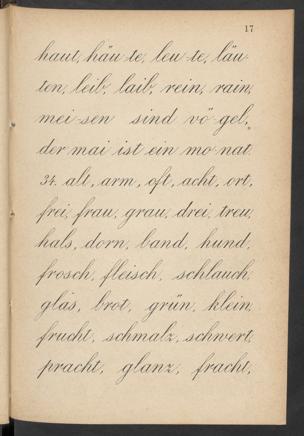 17
haut, häu-te, leu-te, läu-
ten, leib, laib, rein, rain,
mei-sen sind vö-gel,
der mai ist ein mo-nat.
34. alt, arm, oft, acht, ort,
frei, frau, grau, drei, treu,
hals, dorn, band, hund,
frosch, fleisch, schlauch,
glas, brot, grün, klein,
frucht, schmalz, schwert,
pracht, glanz, fracht,